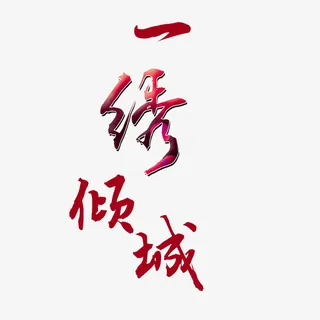 一
绣
倾
城